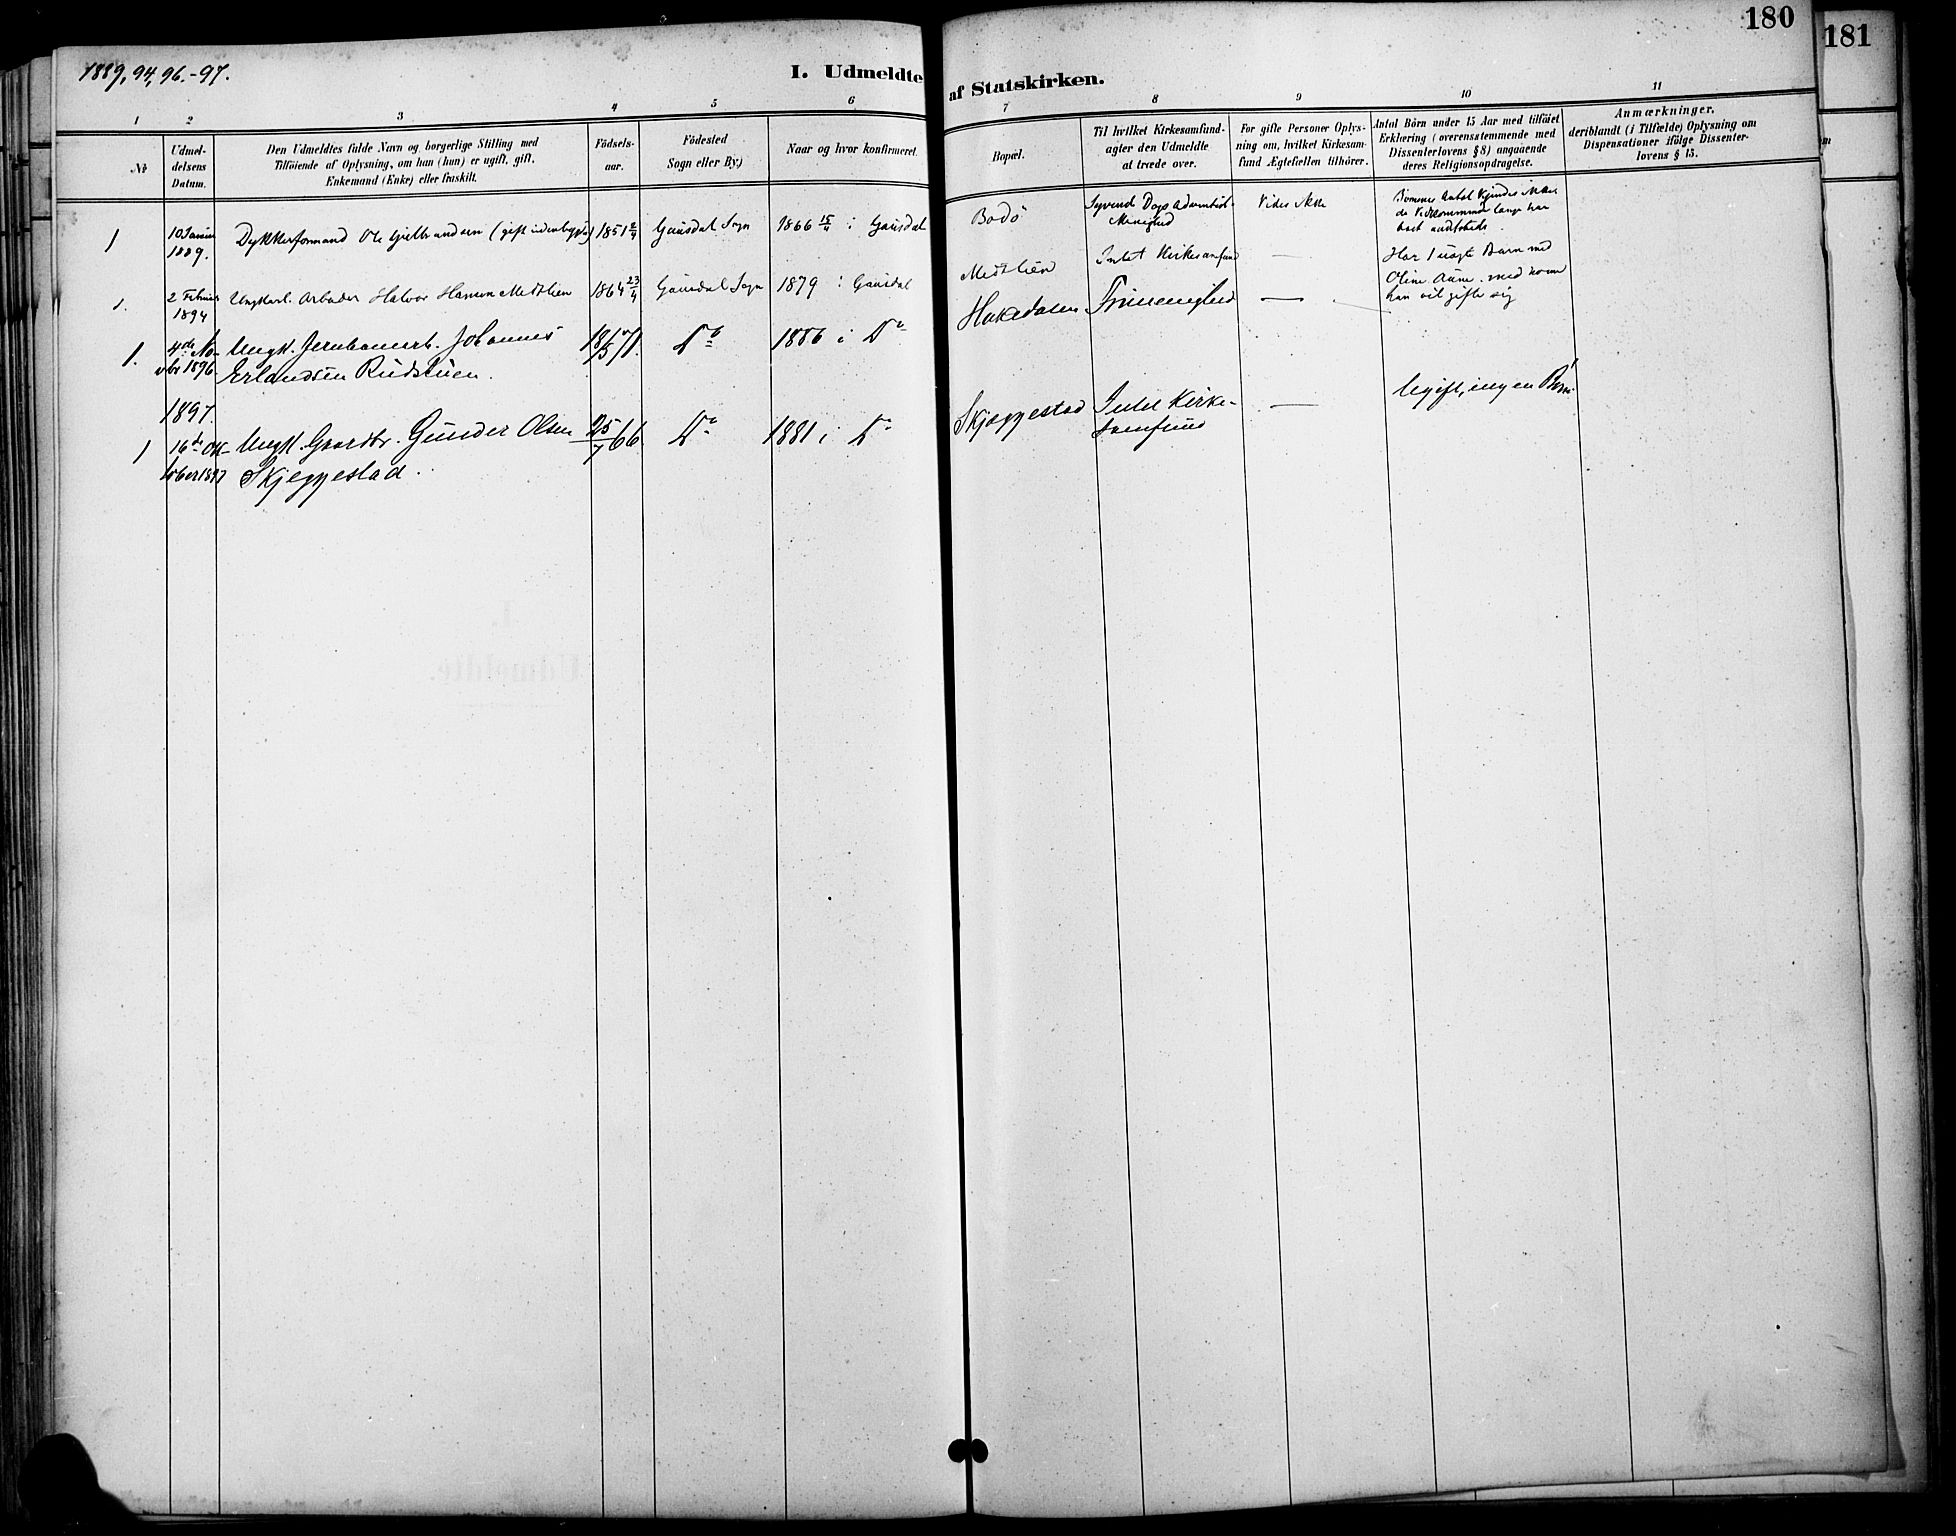 180
181
1889, 94, 96.-97.
I. Udmeldte af Statskirken.
1 2 3 4 5 6 7 8 9 10 11
№
Udmel-
delsens
Datum.
Den Udmeldtes fulde Navn og borgerlige Stilling med
Tilföiende af Oplysning, om han (hun) er ugift, gift,
Enkemand (Enke) eller fraskilt.
Födsels-
aar.
Födested
Sogn eller By.)
Naar og hvor konfirmeret.
Bopæl.
Til hvilket Kirkesamfund-
agter den Udmeldte
at træde over.
For gifte Personer Oplys-
ning om, hvilket Kirkesam-
fund Ægtefællen tilhörer.
Antal Börn under 15 Aar med tilföiet
Erklæring (overensstemmende med
Dissenterlovens § 8) angaaende
deres Religionsopdragelse.
Anmærkninger,
deriblandt (i Tilfælde) Oplysning om
Dispensationer ifölge Dissenter-
lovens § 15.
1
10 Januar
1889.
Dykkerformand Ole Gulbrandsen (gift udenbygds)
1851 2/4
Gausdal Sogn
1866 15/4 i Gausdal
Bodö
Syvende Dags Adventist-
Menighed
Vides ikke
Börnenes Antal kjendes ikke
da Vedkommende længe har
1.
2 Februar
1894
Ungkarl Arbeider Halvor Hansen Medtlien
1864 23/4
Gausdal Sogn
1879 i Gausdal
Medtlien
Intet Kirkesamfund
—
Har 1 uægte Barn med
Oline Aune, med hvem
han vil gifte sig
1.
4de No-
vbr 1896.
Ungk. Jernbanearb. Johannes
Erlandsen Rudstuen.
18/5 71.
Do
1886 i Do
Hakedalen
Frimenighed
—
1897.
1
16de Ok-
tober 1897
Ungk. Gaardbr. Gunder Olsen
Skjeggestad.
25/7 66
Do
1881 i Do
Skjeggestad
Intet Kirke-
samfund
—
Ugift, ingen Börn.